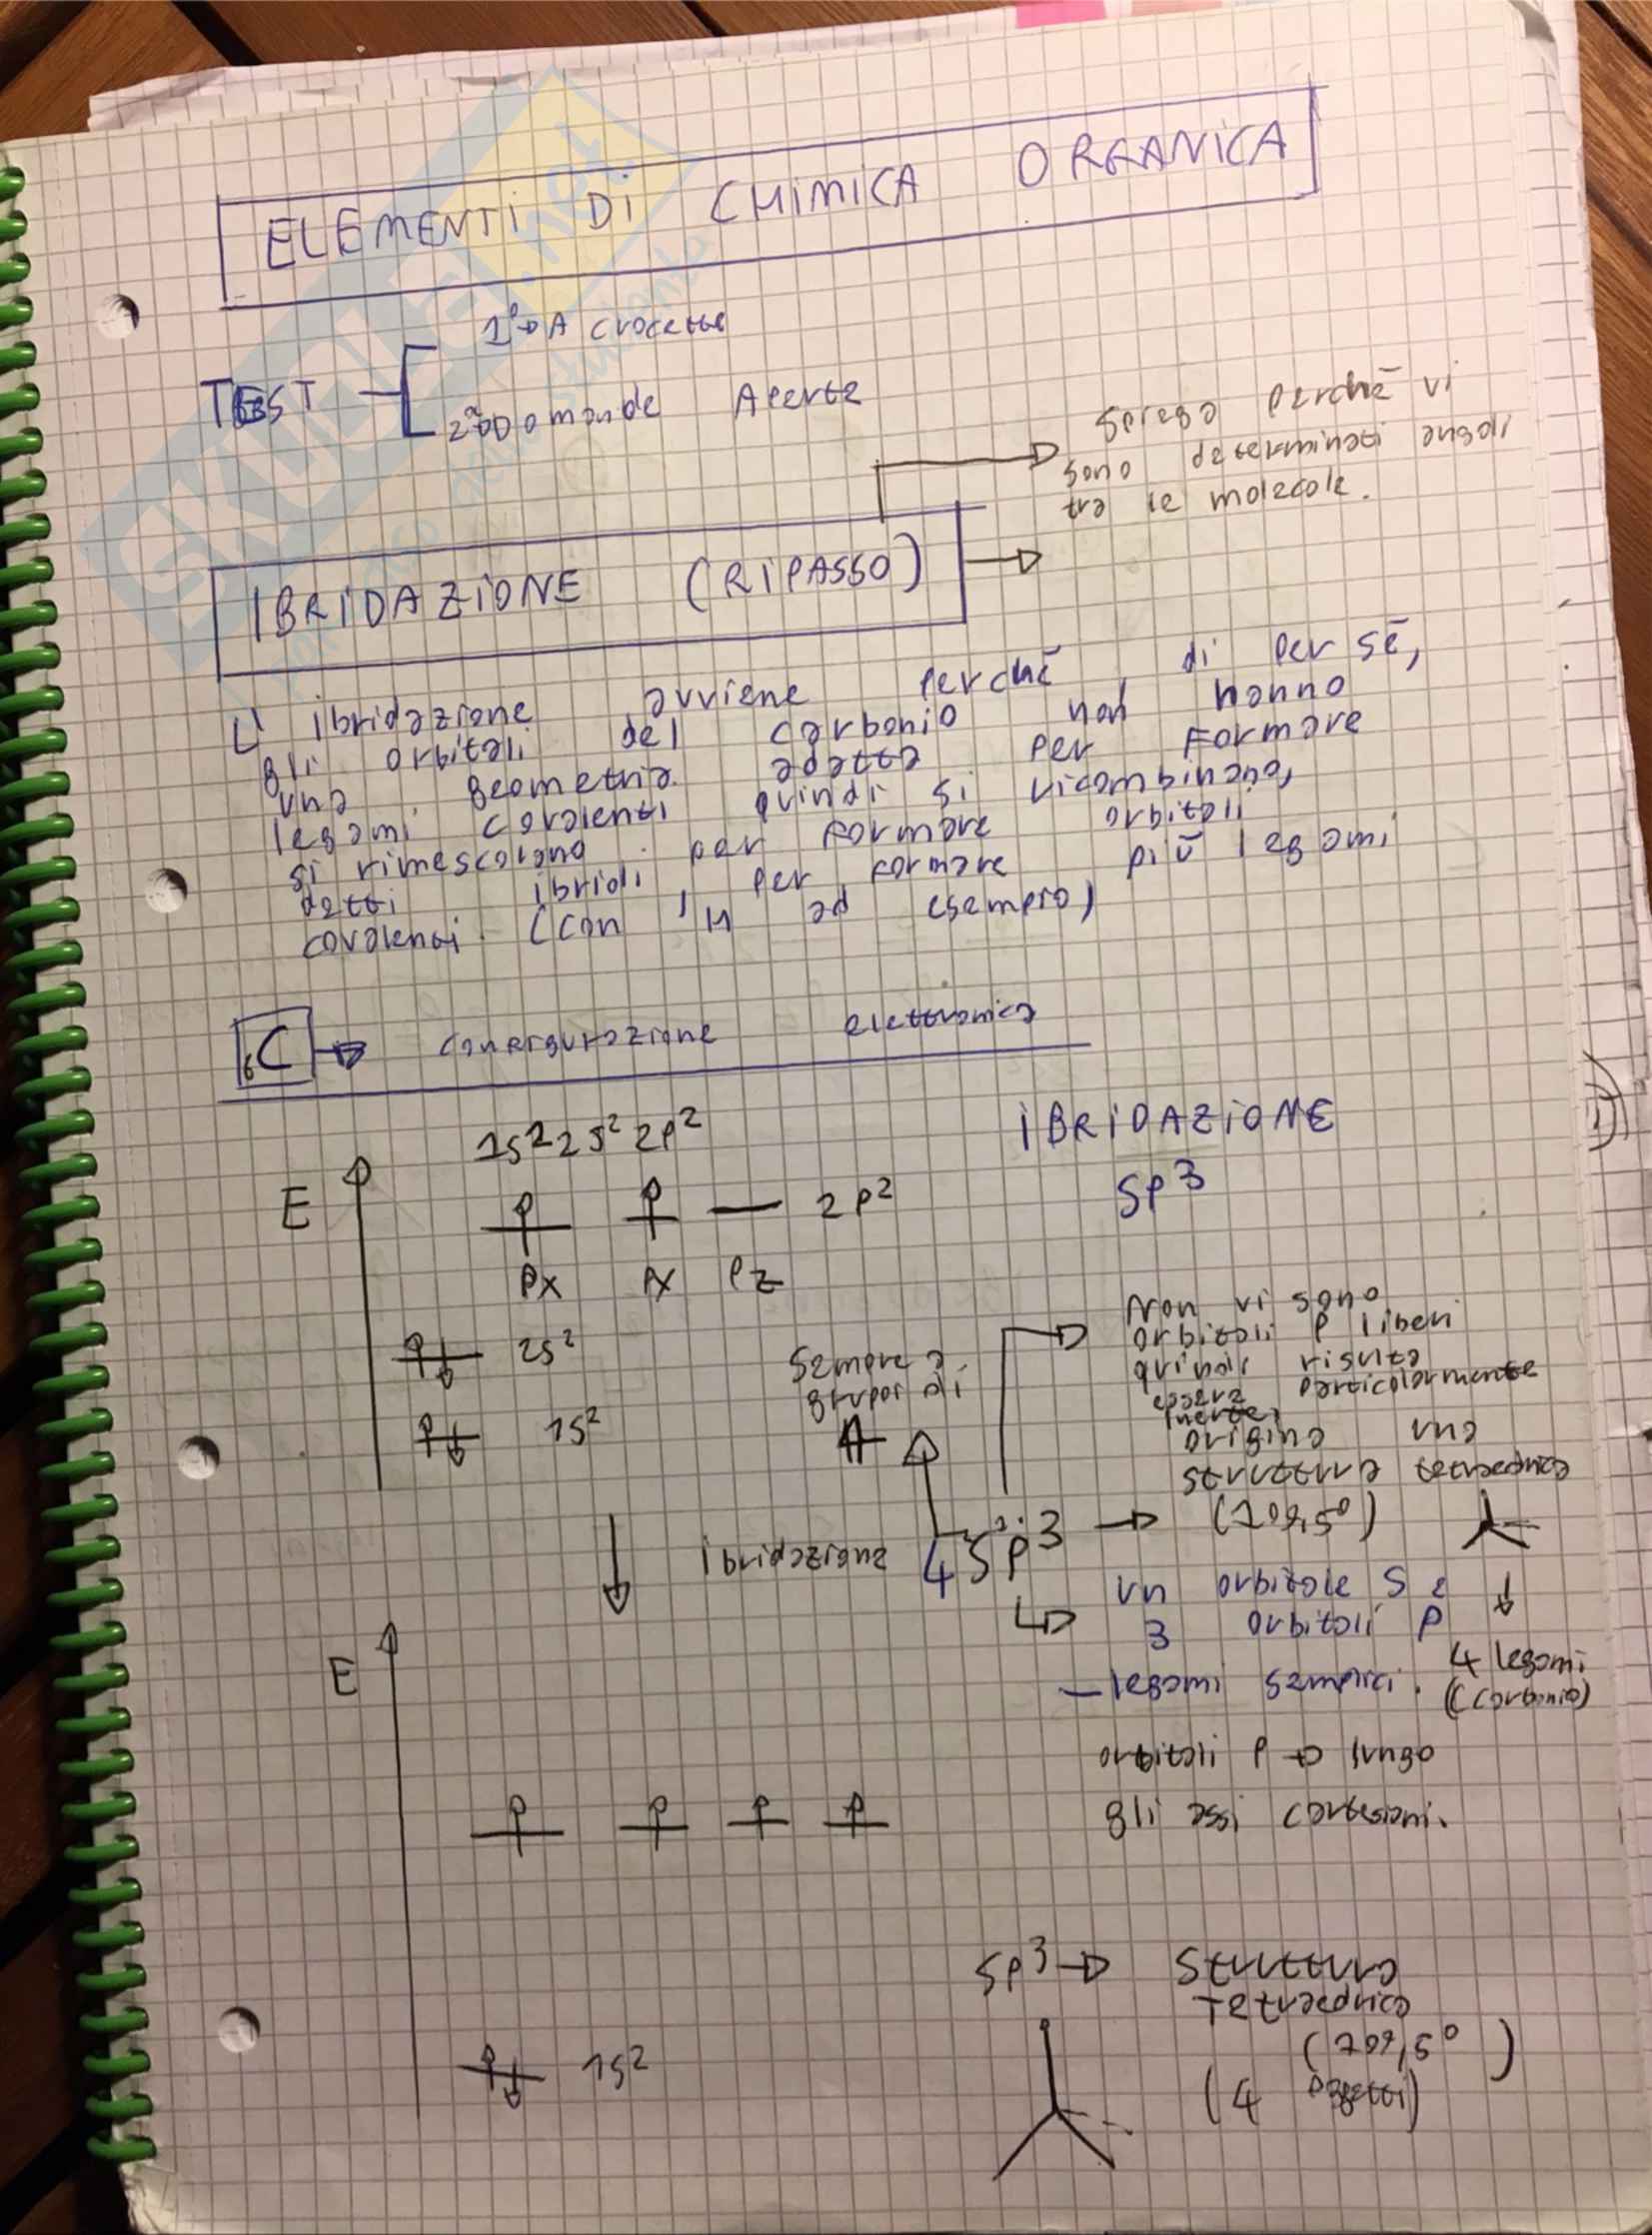 ELEMENTI DI CHIMICA ORGANICA
TEST
1° → A crocette
2° → Domande Aperte
Spiego perché vi
sono determinati angoli
tra le molecole.
IBRIDAZIONE (RIPASSO)
L' ibridazione avviene perché di per sé,
gli orbitali del carbonio non hanno
una geometria adatta per formare
legami covalenti quindi si ricombinano,
si rimescolano per formare orbitali
detti ibridi, per formare più legami
covalenti. (con l'H ad esempio)
6C → configurazione elettronica
1s² 2s² 2p²
IBRIDAZIONE
sp³
E
2p²
Px Px Pz
2s²
1s²
Sempre a
gruppi di
4
Non vi sono
orbitali p liberi
quindi risulta
essere particolarmente
forte,
origina una
struttura tetraedrica
(109,5°)
ibridazione 4 sp³ →
un orbitale s e
3 orbitali p
- legami semplici.
4 legami
(carbonio)
orbitali p → lungo
gli assi cartesiani.
E
sp³ → struttura
Tetraedrica
(109,5°)
(4 oggetti)
1s²
SKUOLA.net